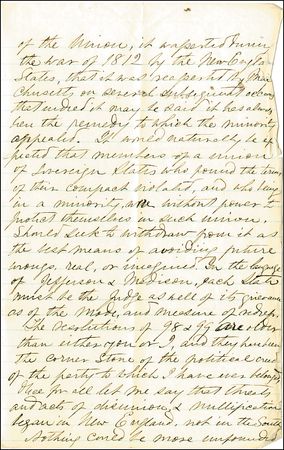 of the Union, it was asserted during
the war of 1812 by the New England
States, that it was reasserted by Massa
chusetts on several subsequent occasions,
that indeed it may be said it has always
been the remedy to which the minority
appealed. It would naturally be ex
pected that members of a union
of sovereign States who found the terms
of their compact violated, and who being
in a minority, were without power to
protect themselves in such union,
should seek to withdraw from it as
the best means of avoiding future
wrongs, real, or imagined. In the language
of Jefferson & Madison, each State
must be the Judge as well of its grievances
as of the Mode, and measure of redress.
The resolutions of 98 & 99 are older
than either you or I, and they have been
the corner Stone of the political creed
of the party to which I have ever belonged.
Once for all let me say that threats
and acts of disunion, & nullification
began in New England, not in the South.
Nothing could be more unfounded